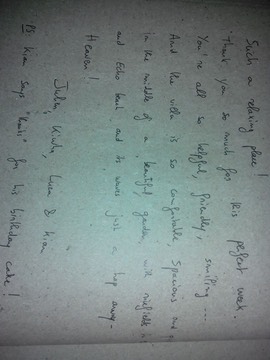 Such a relaxing place!
Thank you so much for this perfect week.
You're all so helpful, friendly, smiling ...
And the villa is so comfortable, spacious and
in the middle of a beautiful garden, with
and Echo beach and its waves just a hop away.
Heaven!
Luca & Kian
PS Kian says "thanks" for his birthday cake!